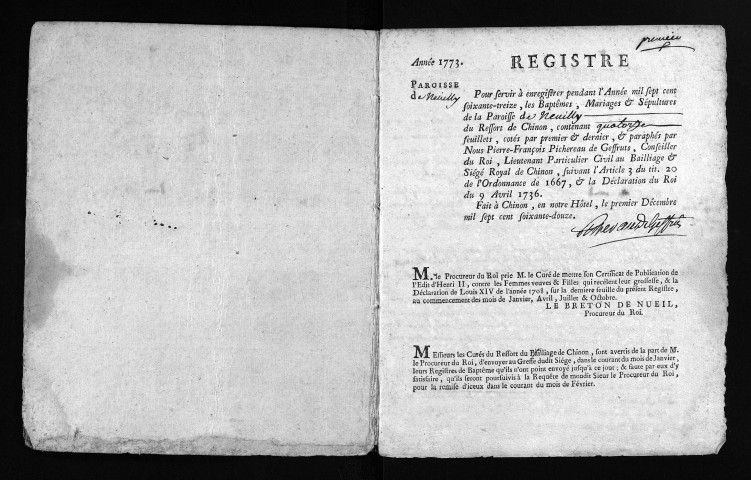 premier
Année 1773. REGISTRE
PAROISSE
de Neuilly
Pour servir à enregistrer pendant l'Année mil sept cent
soixante-treize, les Baptêmes, Mariages & Sépultures
de la Paroisse de Neuilly
du Ressort de Chinon, contenant quatorze
feuillets, cotés par premier & dernier, & paraphés par
Nous Pierre-François Pichereau de Geffruts, Conseiller
du Roi, Lieutenant Particulier Civil au Bailliage &
Siégé Royal de Chinon, suivant l'Article 3 du tit. 20
de l'Ordonnance de 1667, & la Déclaration du Roi
du 9 Avril 1736.
Fait à Chinon, en notre Hôtel, le premier Décembre
mil sept cent soixante-douze.
M. le Procureur du Roi prie M. le Curé de mettre son Certificat de Publication de
l'Edit d'Henri II, contre les Femmes veuves & Filles qui recèlent leur grossesse, & la
Déclaration de Louis XIV de l'année 1708, sur la derniere feuille du présent Registre,
au commencement des mois de Janvier, Avril, Juillet & Octobre.
LE BRETON DE NUEIL,
Procureur du Roi.
MEssieurs les Curés du Ressort du Bailliage de Chinon, sont avertis de la part de M.
le Procureur du Roi, d'envoyer au Greffe dudit Siége, dans le courant du mois de Janvier,
leurs Registres de Baptême qu'ils n'ont point envoyé jusqu'à ce jour; & faute par eux d'y
satisfaire, qu'ils seront poursuivis à la Requête de mondit Sieur le Procureur du Roi,
pour la remise d'iceux dans le courant du mois de Février.